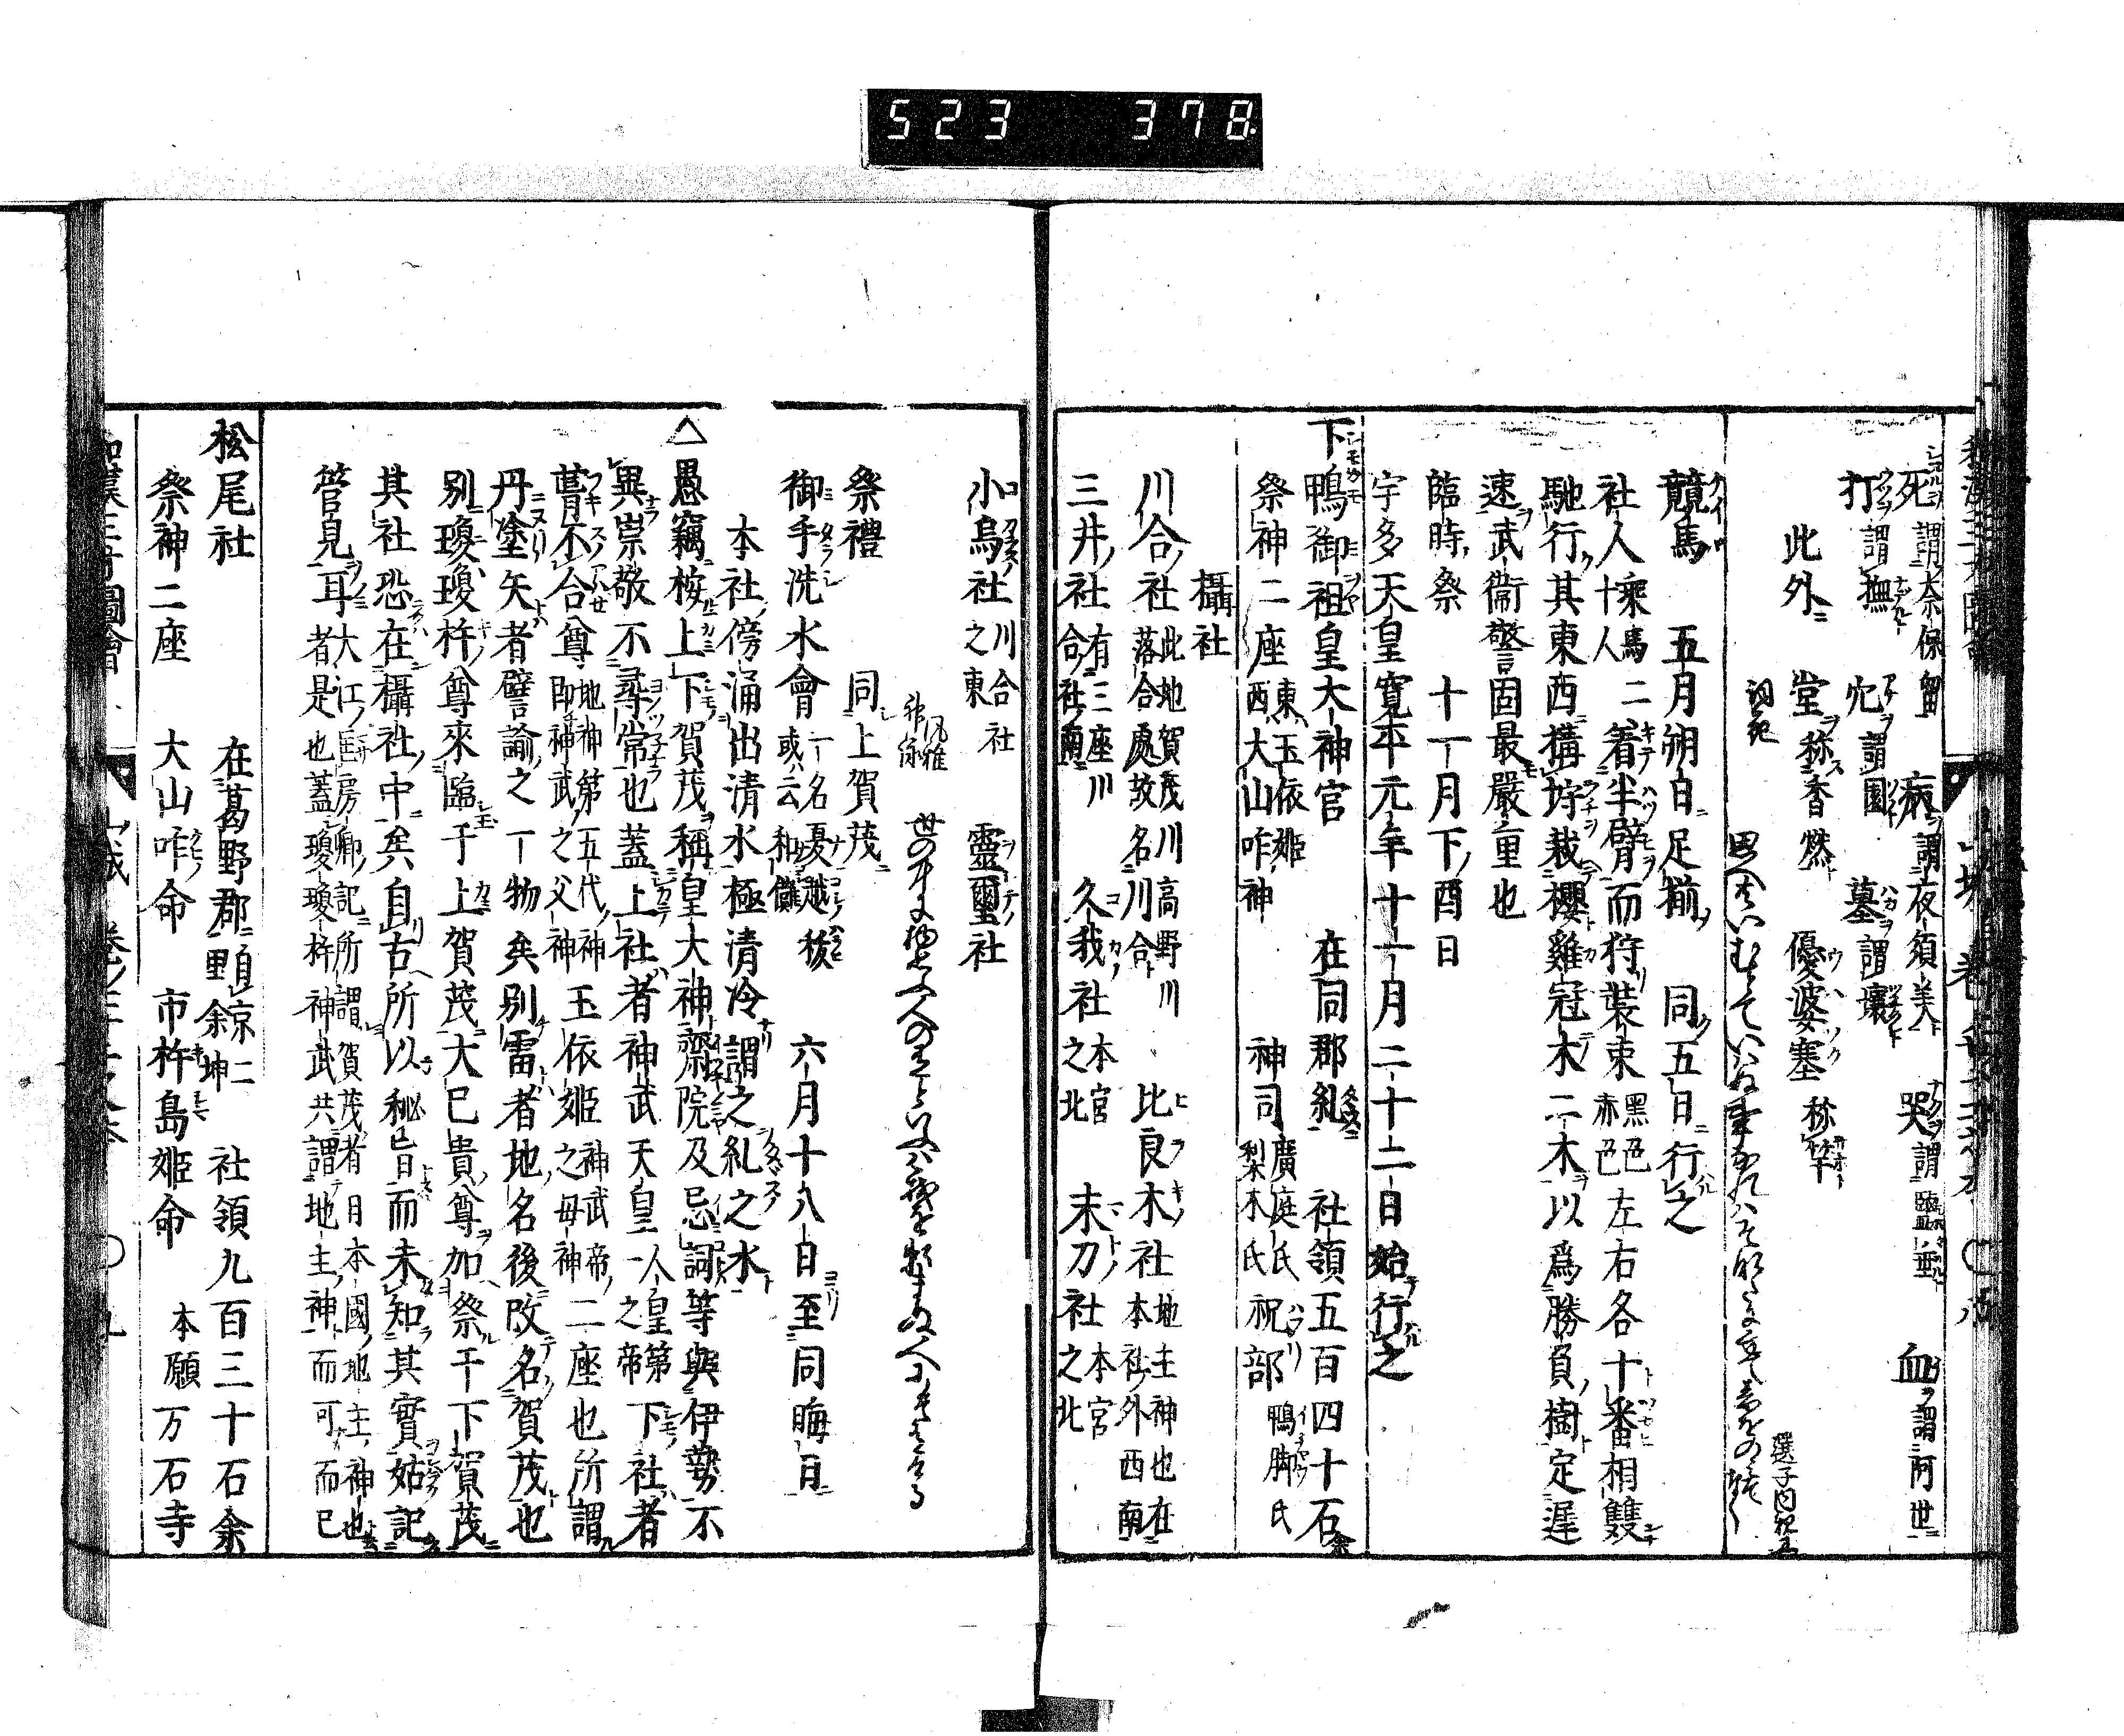 523 378
死謂奈保留 病謂夜須美 哭謂鹽垂 血謂阿世
打謂撫 穴謂園 墓謂壤
此外 堂称香燃 優婆塞称竿
競馬 五月朔日足揃 同五日行之
社人十人乘馬二着半臂而狩裝束黑色赤色左右各十番相雙
馳行其東西構埒栽櫻雞冠木二木以爲勝負樹定遅
速武衞警固最嚴重也
臨時祭 十一月下ノ酉日
宇多天皇寛平元年十一月二十二日始行之
下鴨御祖皇大神宮 在同郡糺 社領五百四十石余
祭神二座東玉依姫西大山咋神 神司廣庭氏梨木氏 祝部鴨脚氏
攝社
川合社此地賀茂川高野川落合處故名川合 比良木社地主神也在本社外西南
三井社有三座川合社南 久我社本宮之北 末刀社本宮之北
小烏社川合社之東 靈璽社
祭禮 同上賀茂
御手洗水會一名夏越祓或云和儺 六月十八日至同晦日
本社傍涌出清水極清冷謂之糺之水
△愚竊按上下賀茂稱皇大神齋院及忌詞等與伊勢不
異崇敬不尋常也蓋上社者神武天皇人皇第一之帝下社者
葺不合尊地神第五代神即神武之父神玉依姫神武帝之母神二座也所謂
丹塗矢者譬諭之一物矣別雷者地名後改名賀茂也
別瓊瓊杵尊來臨于上賀茂大己貴尊加祭于下賀茂
其社恐在攝社中矣自古所以秘旨而未知其實姑記
管見耳大江匡房卿記所謂賀茂者日本國地主神也者是也蓋瓊瓊杵神武共謂地主神而可而已
松尾社 在葛野郡自京二里余坤 社領九百三十石余
祭神二座 大山咋命 市杵島姫命 本願万石寺